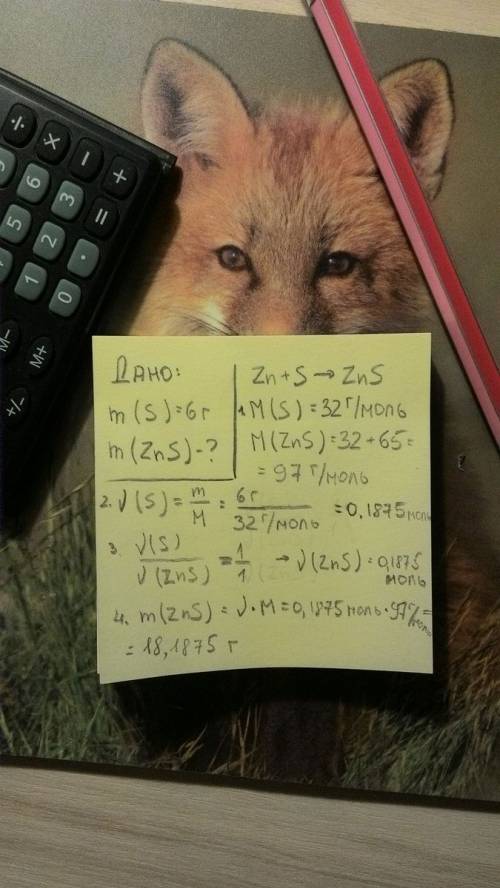 Дано:
m(S)=6г
m(ZnS)-?
Zn+S→ZnS
1. M(S)=32 г/моль
M(ZnS)=32+65=
=97 г/моль
2. √(S)=m/M=6г/32 г/моль=0,1875 моль
3. √(S)/√(ZnS)=1/1 →√(ZnS)=0,1875
моль
4. m(ZnS)=√·M=0,1875 моль·97 г/моль=
=18,1875 г
÷ × − +
6 3 =
5 2 ·
1 0
M− M+
+/−